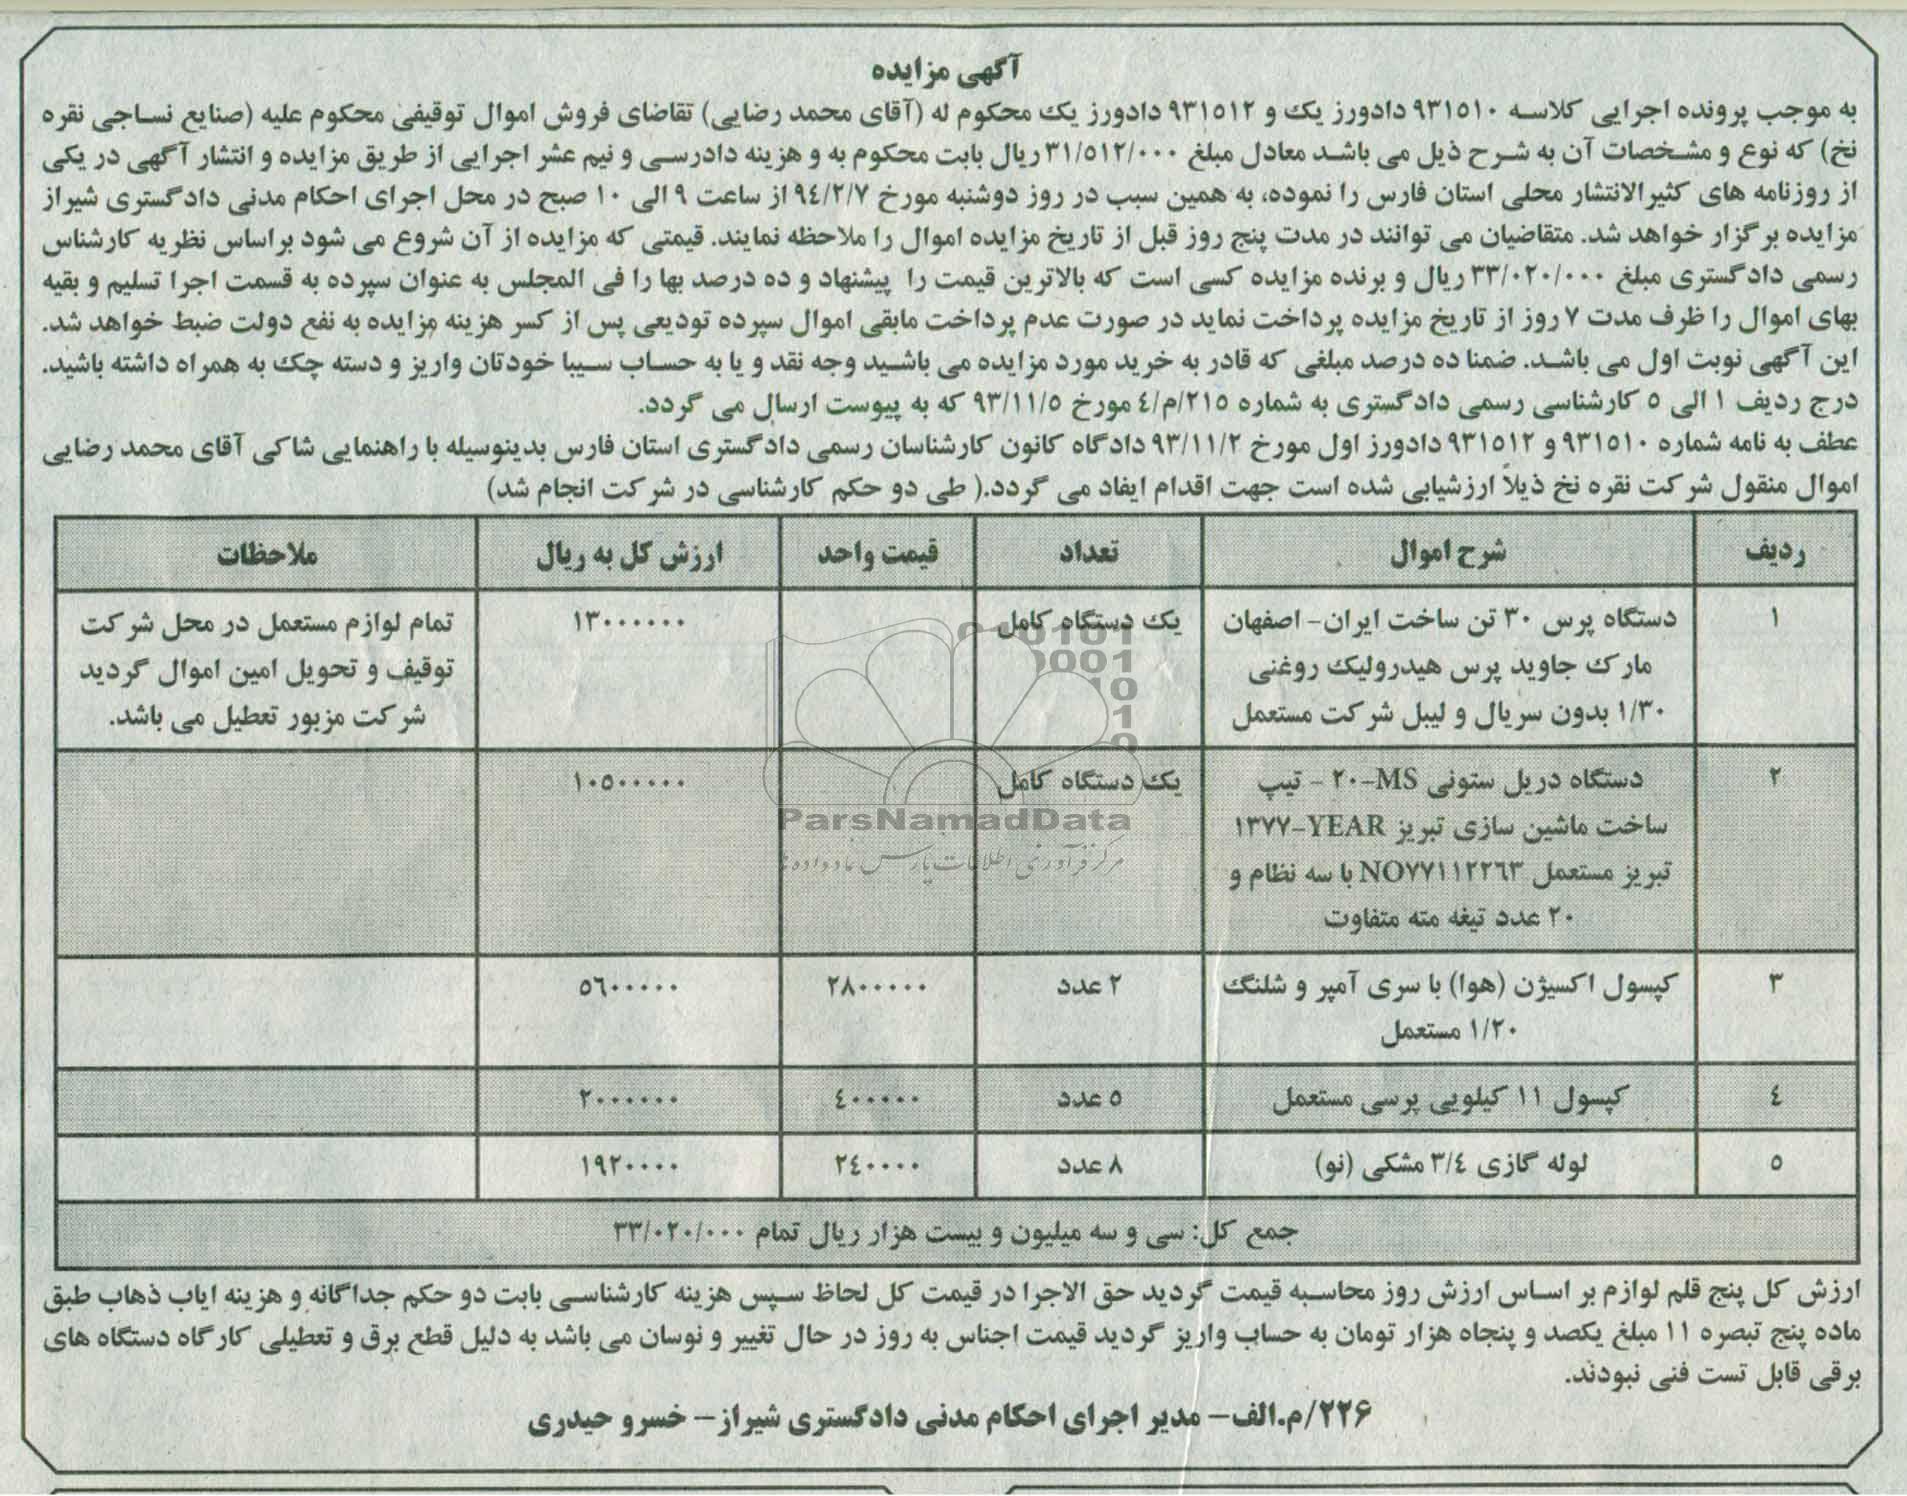 آگهی مزایده
به موجب پرونده اجرایی کلاسه ۹۳۱۵۱۰ دادورز یک و ۹۳۱۵۱۲ دادورز یک محکوم له (آقای محمد رضایی) تقاضای فروش اموال توقیفی محکوم علیه (صنایع نساجی نقره
نخ) که نوع و مشخصات آن به شرح ذیل می باشد معادل مبلغ ۳۱/۵۱۲/۰۰۰ ریال بابت محکوم به و هزینه دادرسی و نیم عشر اجرایی از طریق مزایده و انتشار آگهی در یکی
از روزنامه های کثیرالانتشار محلی استان فارس را نموده، به همین سبب در روز دوشنبه مورخ ۹۴/۲/۷ از ساعت ۹ الی ۱۰ صبح در محل اجرای احکام مدنی دادگستری شیراز
مزایده برگزار خواهد شد. متقاضیان می توانند در مدت پنج روز قبل از تاریخ مزایده اموال را ملاحظه نمایند. قیمتی که مزایده از آن شروع می شود براساس نظریه کارشناس
رسمی دادگستری مبلغ ۳۳/۰۲۰/۰۰۰ ریال و برنده مزایده کسی است که بالاترین قیمت را پیشنهاد و ده درصد بها را فی المجلس به عنوان سپرده به قسمت اجرا تسلیم و بقیه
بهای اموال را ظرف مدت ۷ روز از تاریخ مزایده پرداخت نماید در صورت عدم پرداخت مابقی اموال سپرده تودیعی پس از کسر هزینه مزایده به نفع دولت ضبط خواهد شد.
این آگهی نوبت اول می باشد. ضمنا ده درصد مبلغی که قادر به خرید مورد مزایده می باشید وجه نقد و یا به حساب سیبا خودتان واریز و دسته چک به همراه داشته باشید.
درج ردیف ۱ الی ۵ کارشناسی رسمی دادگستری به شماره ۲۱۵/م/۴ مورخ ۹۳/۱۱/۵ که به پیوست ارسال می گردد.
عطف به نامه شماره ۹۳۱۵۱۰ و ۹۳۱۵۱۲ دادورز اول مورخ ۹۳/۱۱/۲ دادگاه کانون کارشناسان رسمی دادگستری استان فارس بدینوسیله با راهنمایی شاکی آقای محمد رضایی
اموال منقول شرکت نقره نخ ذیلاً ارزشیابی شده است جهت اقدام ایفاد می گردد.( طی دو حکم کارشناسی در شرکت انجام شد)
ردیف شرح اموال تعداد قیمت واحد ارزش کل به ریال ملاحظات
۱ دستگاه پرس ۳۰ تن ساخت ایران- اصفهان یک دستگاه کامل ۱۳۰۰۰۰۰۰ تمام لوازم مستعمل در محل شرکت
مارک جاوید پرس هیدرولیک روغنی توقیف و تحویل امین اموال گردید
۱/۳۰ بدون سریال و لیبل شرکت مستعمل شرکت مزبور تعطیل می باشد.
۲ دستگاه دریل ستونی MS-۲۰ - تیپ یک دستگاه کامل ۱۰۵۰۰۰۰۰
ساخت ماشین سازی تبریز YEAR-۱۳۷۷
تبریز مستعمل NO۷۷۱۱۲۲۶۳ با سه نظام و
۲۰ عدد تیغه مته متفاوت
۳ کپسول اکسیژن (هوا) با سری آمپر و شلنگ ۲ عدد ۲۸۰۰۰۰۰ ۵۶۰۰۰۰۰
۱/۲۰ مستعمل
۴ کپسول ۱۱ کیلویی پرسی مستعمل ۵ عدد ۴۰۰۰۰۰ ۲۰۰۰۰۰۰
۵ لوله گازی ۳/۴ مشکی (نو) ۸ عدد ۲۴۰۰۰۰ ۱۹۲۰۰۰۰
جمع کل: سی و سه میلیون و بیست هزار ریال تمام ۳۳/۰۲۰/۰۰۰
ارزش کل پنج قلم لوازم بر اساس ارزش روز محاسبه قیمت گردید حق الاجرا در قیمت کل لحاظ سپس هزینه کارشناسی بابت دو حکم جداگانه و هزینه ایاب ذهاب طبق
ماده پنج تبصره ۱۱ مبلغ یکصد و پنجاه هزار تومان به حساب واریز گردید قیمت اجناس به روز در حال تغییر و نوسان می باشد به دلیل قطع برق و تعطیلی کارگاه دستگاه های
برقی قابل تست فنی نبودند.
۲۲۶/م.الف- مدیر اجرای احکام مدنی دادگستری شیراز- خسرو حیدری
ParsNamadData
مرکز فرآوری اطلاعات پارس نماد داده ها